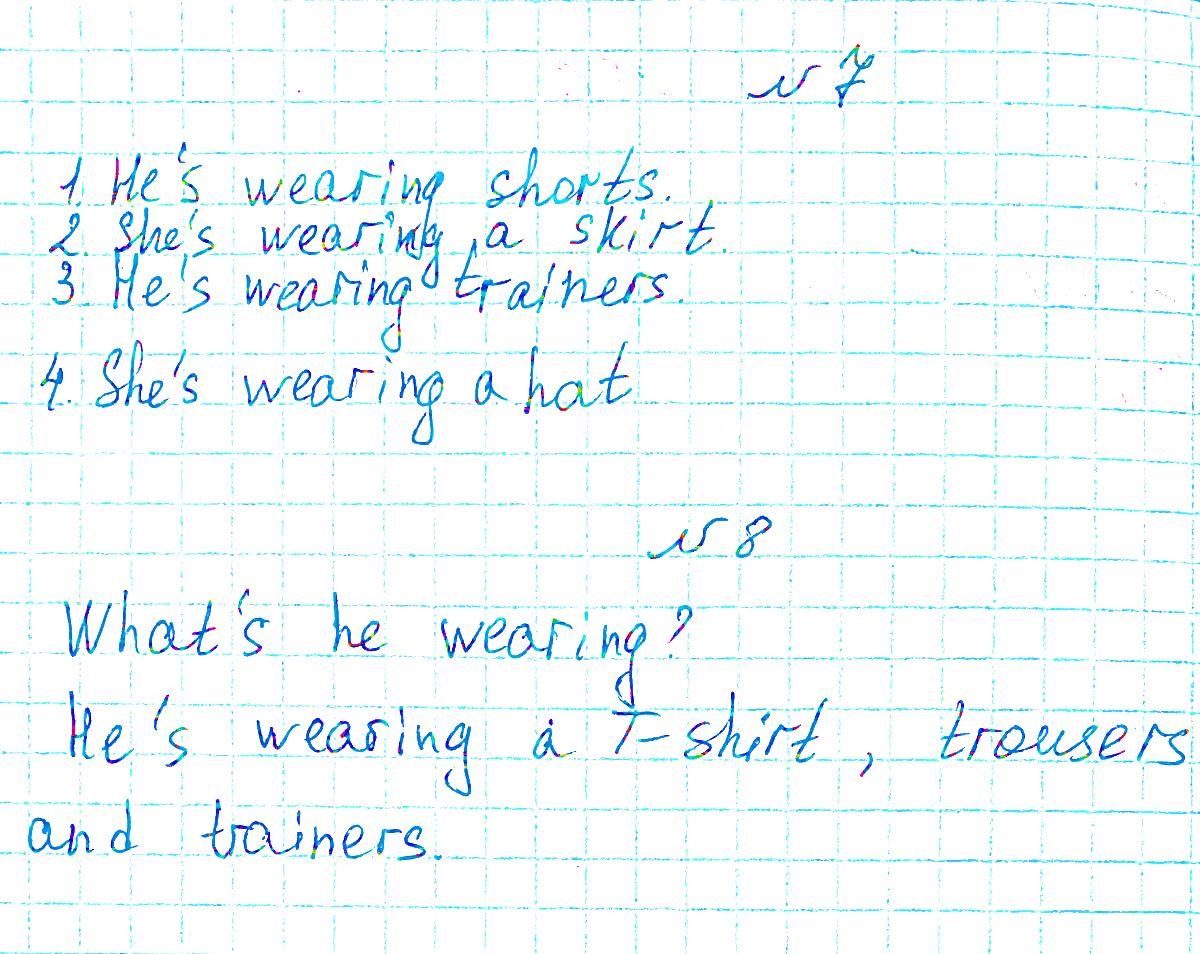 № 7
1. He's wearing shorts.
2. She's wearing a skirt.
3. He's wearing trainers.
4. She's wearing a hat
№ 8
What's he wearing?
He's wearing a T-shirt, trousers
and trainers.